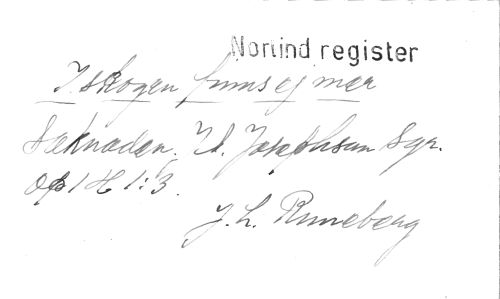 Norlind register
I skogen finns ej mer
Saknaden. Js. Josephson Sgr.
Op 1 H 1:3.
J. L. Runeberg